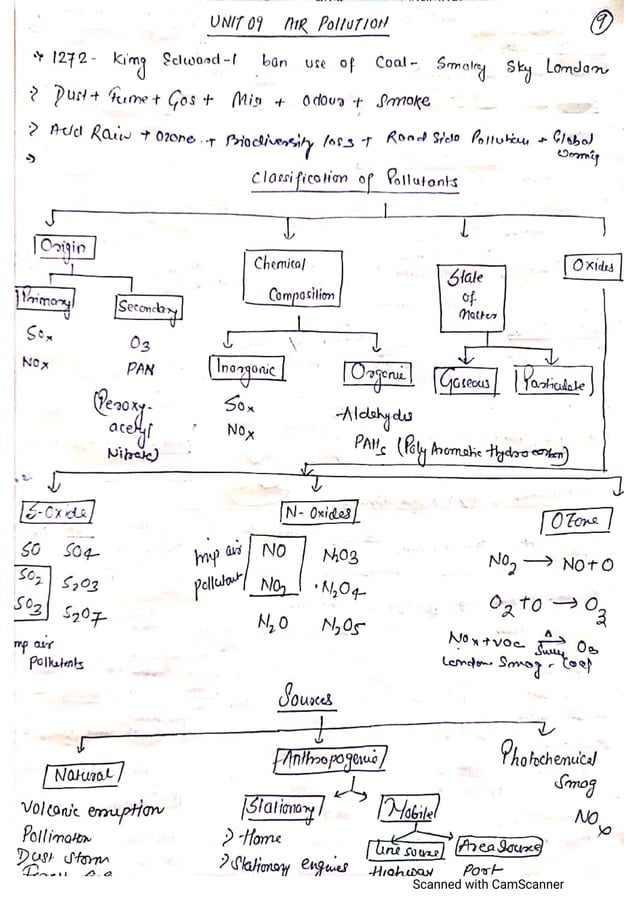 UNIT 09 AIR POLLUTION
9
1272- King Edward-I ban use of Coal- Smokey Sky London
Dust + Fume + Gas + Mis + Odour + Smoke
Acid Rain + Ozone + Biodiversity loss + Road Side Pollution + Global Worming
Classification of Pollutants
Origin
Chemical Composition
State of Matter
Oxides
Primary
Secondary
SOx
NOx
O3
PAN
(Peroxy-
acetyl
Nitrate)
Inorganic
Organic
SOx
NOx
Aldehyde
PAHs (Poly Aromatic Hydrocarbon)
Gaseous
Particulate
S-Oxide
N-Oxides
OZone
SO SO4
SO2 S2O3
SO3 S2O7
mp air
pollutants
Imp air
pollutant
NO N2O3
NO2 N2O4
N2O N2O5
NO2 → NO + O
O2 + O → O3
NOx + VOC → O3
London Smog - Coal
Sources
Natural
Volcanic erruption
Pollination
Dust Storm
Anthropogenic
Stationary
Home
Stationary engines
Mobile
Line source
Highway
Area Source
Port
Photochemical
Smog
NOx
Scanned with CamScanner